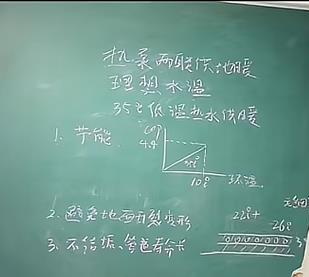 热泵两联供地暖
理想水温
35℃低温热水供暖
1、节能
COP
4.4
35℃
10℃
环温
2、避免地面开裂变形
22℃+
26℃
3、不结垢、管道寿长